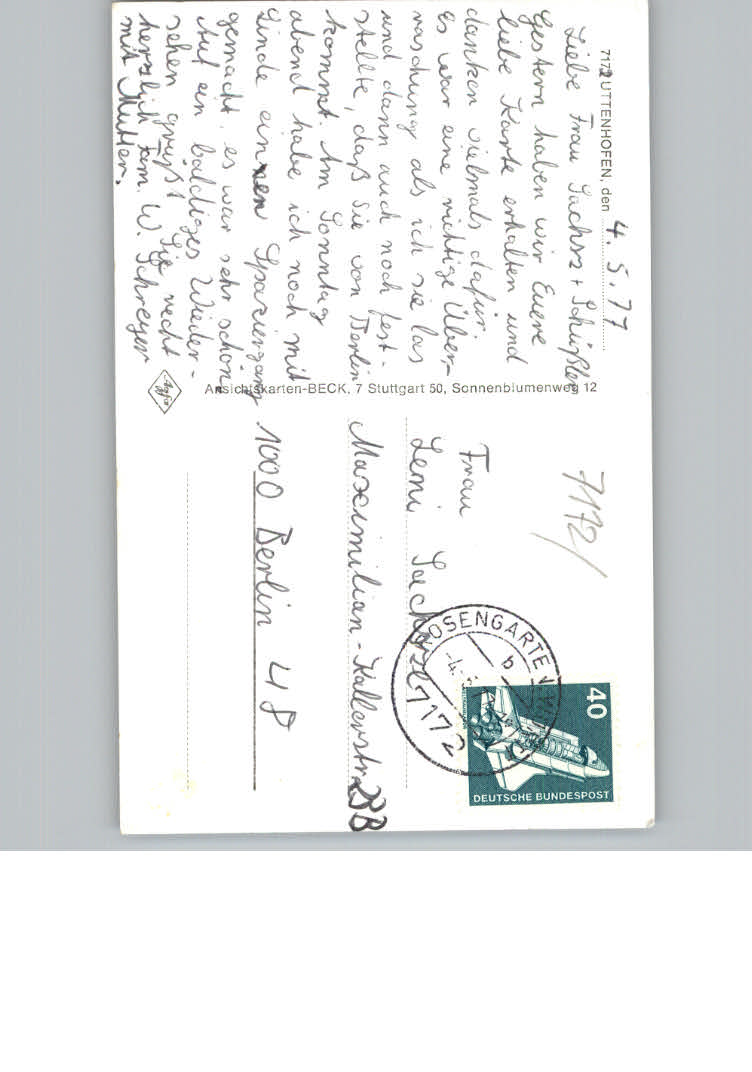 7172 UTTENHOFEN, den 4. 5. 77
Liebe Frau Sachsz + Schüßler
Gestern haben wir Euere
liebe Karte erhalten und
danken vielmals dafür.
Es war eine richtige Über-
raschung als ich sie las
und dann auch noch fest-
stellte, daß Sie von Berlin
kommt. Am Sonntag
abend habe ich noch mit
Linde einen Spaziergang
gemacht, es war sehr schön
Auf ein baldiges Wieder-
sehen grüßt Sie recht
herzlich Fam. W. Schreyer
mit Mutter.
Agfa
Ansichtskarten-BECK, 7 Stuttgart 50, Sonnenblumenweg 12
7172/
Frau
Leni
Maximilian-Kollerstra 23B
1000 Berlin 48
ROSENGARTEN
b
7172
40
DEUTSCHE BUNDESPOST